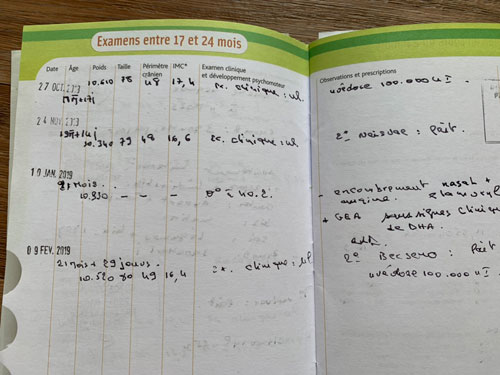 Examens entre 17 et 24 mois
Date Âge Poids Taille Périmètre crânien IMC* Examen clinique et développement psychomoteur Observations et prescriptions
27 OCT. 10.610 78 48 17,4 clinique : nl uvedose 100.000 UI.
24 NOV. 10.340 79 48 16,6 Ex. clinique : nl 2° Neisvac : fait.
10 JAN. 2019
mois. 10.930 — — — - encombrement nasal +
angine.
+ GEA sans signes cliniques
de DHA.
09 FEV. 2019
21 mois + 29 jours. 2° Bexsero : fait
10.520 80 49 16,4 Ex. clinique : nl uvedose 100.000 UI